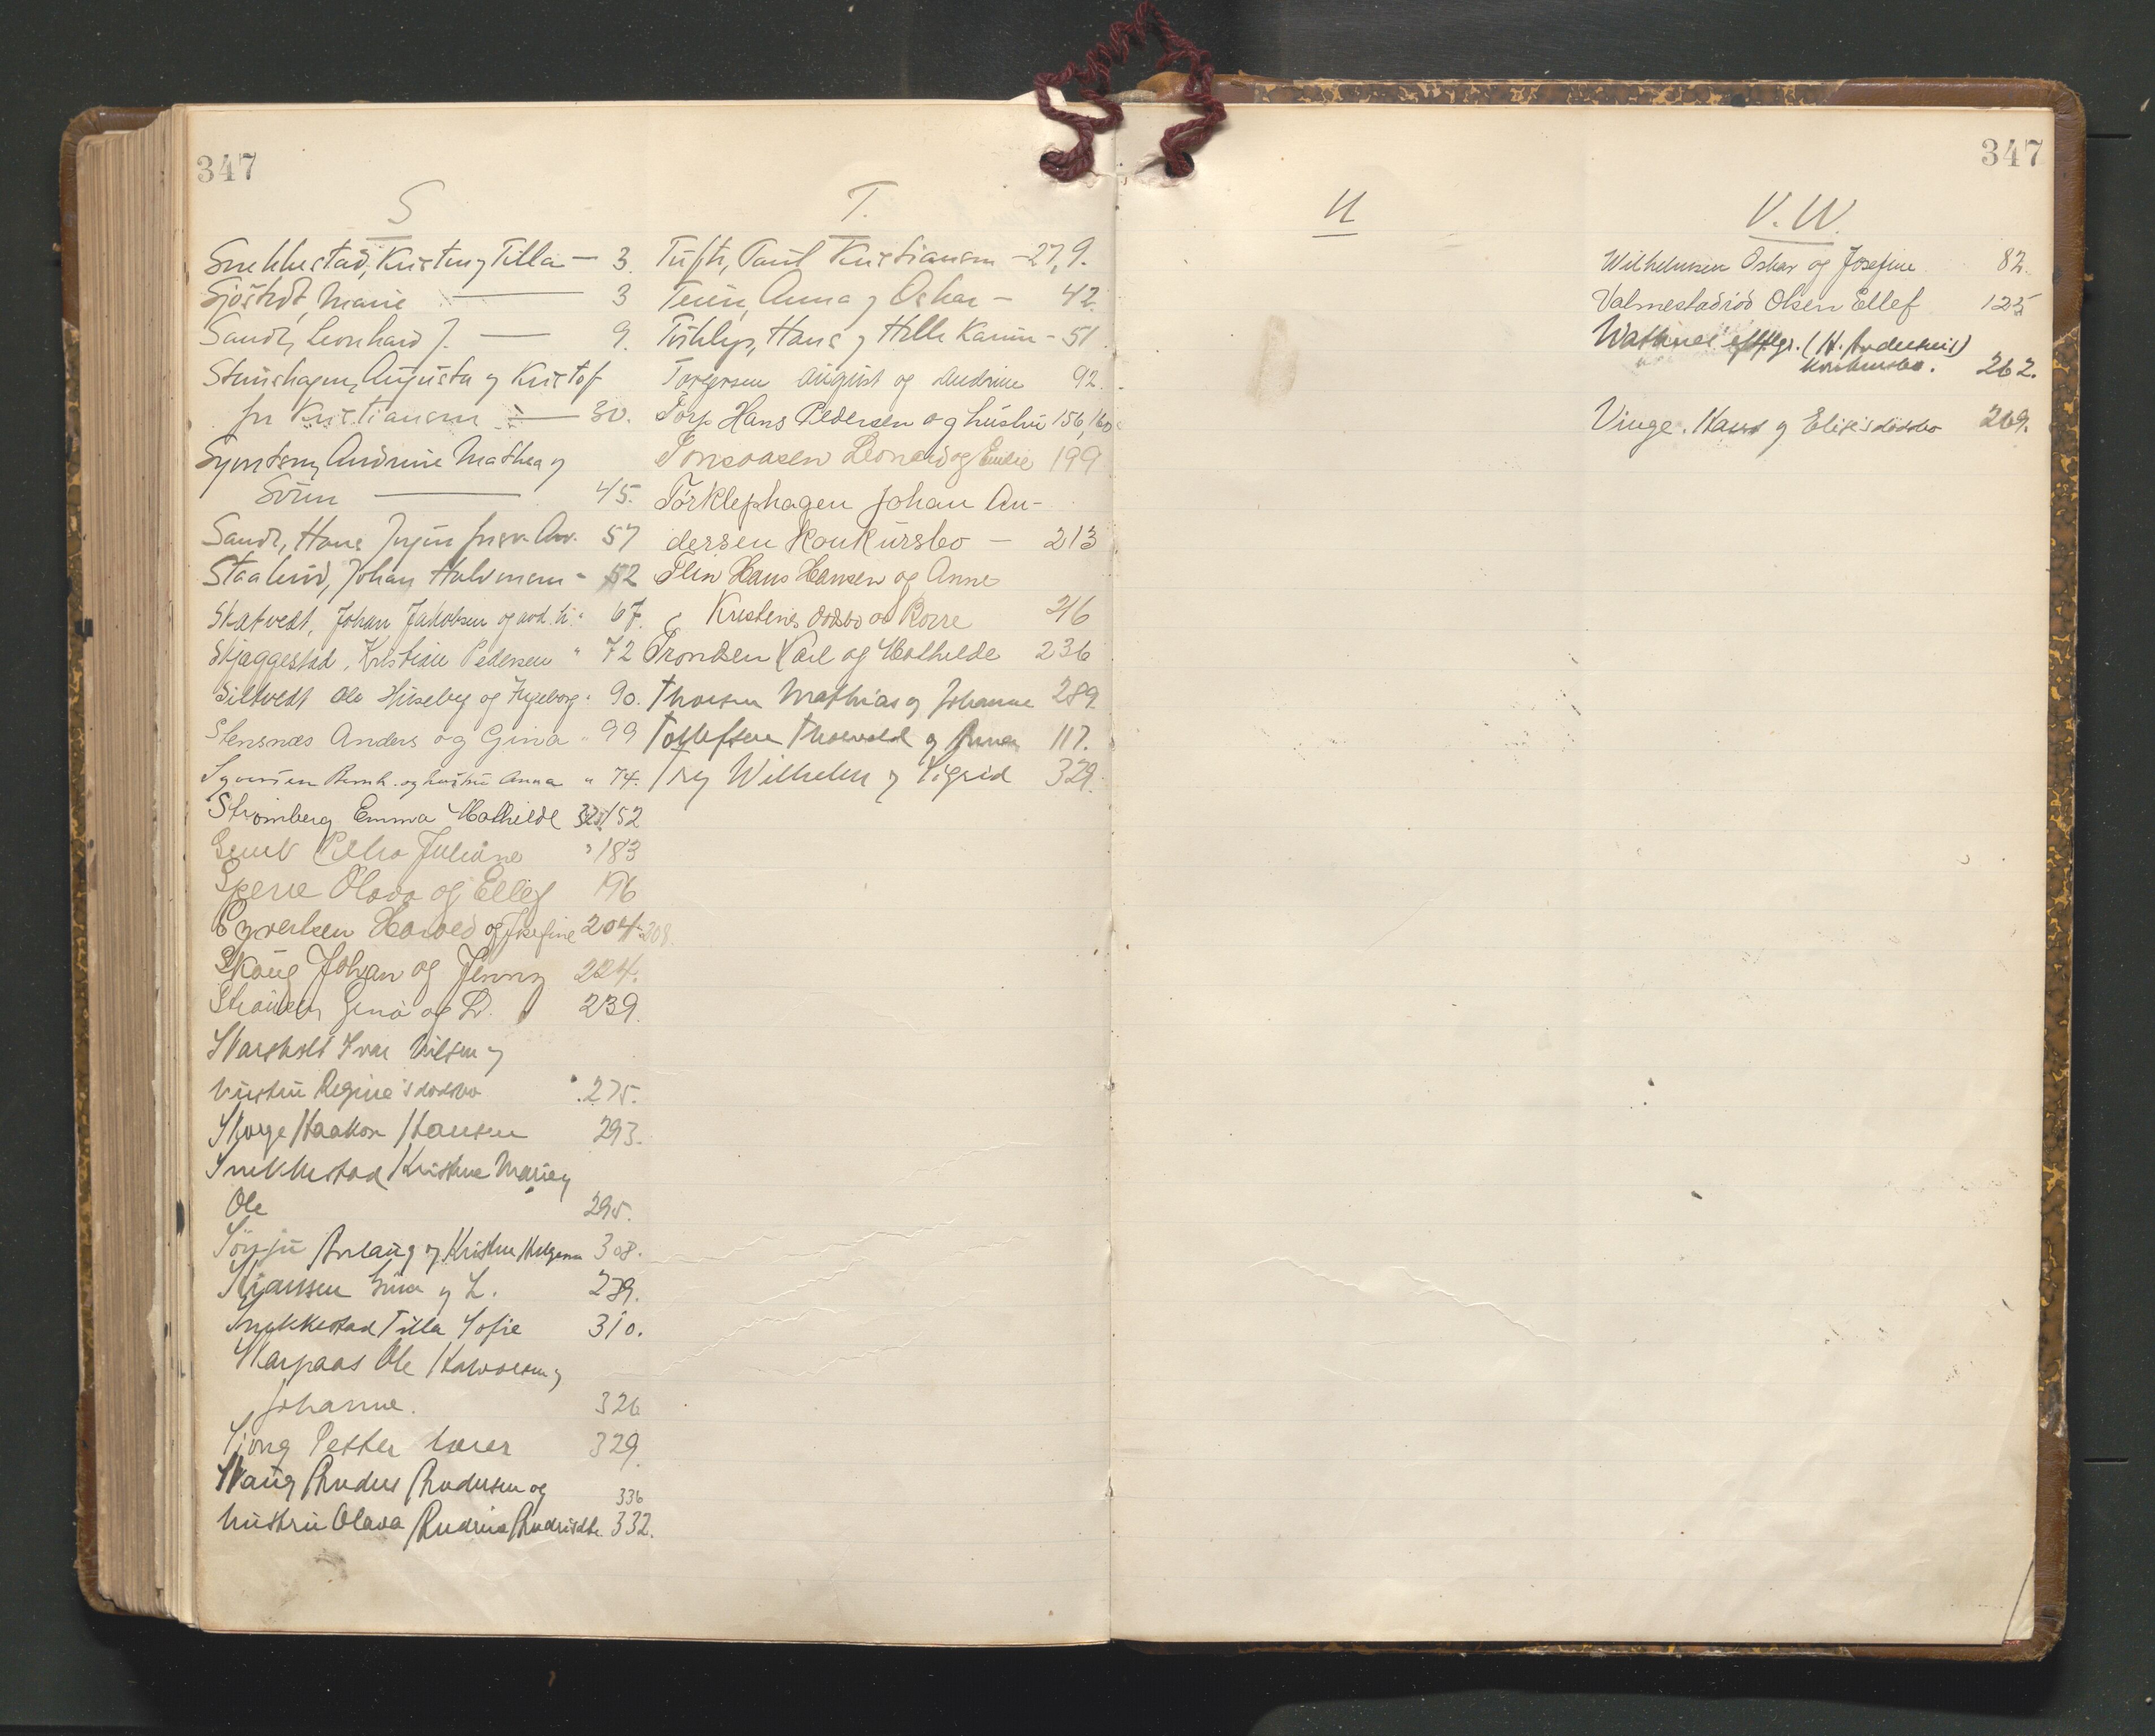 347
S
Snekkestad, Kristen og Tilla — 3.
Sjøstedt, Marie — 3
Sande, Leonhard J. — 9.
Augusta og Kristof
Kristiansen — 30.
Andrine Mathea og
Sören — 45.
Sande, Hans 57
Johan Halvorsen - 52
Skatvedt, Johan Jakobsen og 67.
Skjaggestad, Kristian Pedersen " 72
Siltvedt Ole Huseby og Ingeborg " 90.
Stensnæs Anders og Gina " 99
Syversen Bernh. og hustru Anna " 74.
Strømberg Emma Mathilde 325/152
Petra Juliane " 183
Sperre Olava og Ellef 196
Syvertsen Harald og Josefine 204-208.
Skoug Johan og Jenny 224.
Gina og L. 239.
Skarsholt Ivar Nilsen og
hustru Regine's dødsbo 275.
Skorge Haakon Hansen 293.
Snekkestad Kristine Marie og
Ole 295.
Aslaug og Kristine 308.
Gina og L. 239.
Snekkestad Tilla Sofie 310.
Skarpaas Ole Halvorsen og
Johanne. 326
Sjong Petter lærer 329.
Skaug Anders Andersen og 336
hustru Olava Andrea 332.
T.
Tufte, Paul Kristiansen - 27, 9.
Anna og Oskar - 42.
Hans og Helle Karine - 51.
Torgersen August og Andrine 92.
Torp Hans Pedersen og hustru 156, 160
Leonard og Emilie 199
Tørklephagen Johan An-
dersen konkursbo — 213
Hans Hansen og Anne
Kristines dødsbo Borre 216
Trondsen Karl og Mathilde 236
Thorsen Mathias og Johanne 289.
Tollefsen Thorvald og Anna 117.
Wilhelm og Sigrid 329.
U
347
V. W.
Wilhelmsen Oskar og Josefine 82.
Valmestadrød Olsen Ellef 125
efterflgr. (H. Andersens)
konkursbo. 262.
Vinge. Hans og Elise's dødsbo 269.